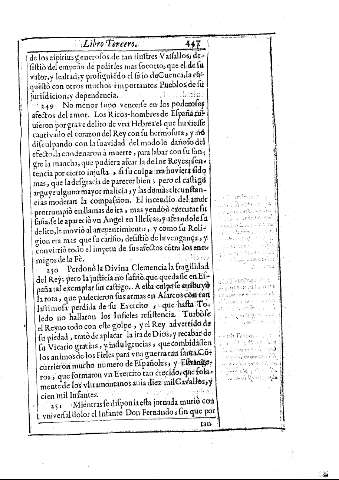 Libro Tercero. 447
de los espiritus generosos de tan ilustres Vassallos, de-
sistiò del empeño de pedirles mas socorro, que el de su
valor, y lealtad, y prosiguiẽdo el sitio de Cuenca, la cõ-
quistò con otros muchos importantes Pueblos de su
jurisdicion, y dependencia.
249 No menor fuego vencerse en los poderosos
afectos del amor. Los Ricos-hombres de España tu-
vieron por grave delito de vna Hebrea el que huviesse
cautivado el corazon del Rey con su hermosura, y no
disculpando con la suavidad del modo lo dañoso del
efecto, la condenaron à muerte, para labar con su san-
gre la mancha, que pudiera afear la del no Reyos; sen-
tencia por cierto injusta, si su culpa no huviera sido
mas, que la desgracia de parecer bien; pero el castigo
arguye alguna mayor malicia, y las demàs circunstan-
cias moderan la compassion. El incendio del amor
prorrumpiò en llamas de ira, mas yendo à executar su
saña se le apareciò vn Angel en Illescas, y afeandole su
delito, le moviò al arrepentimiento, y como su Reli-
gion era mas que su cariño, desistiò de la vengança, y
convirtiò todo el impetu de sus afectos cõtra los ene-
migos de la Fè.
250 Perdonò la Divina Clemencia la fragilidad
del Rey; pero la justicia no sufriò que quedasse en Es-
paña tal exemplar sin castigo. A esta culpa se atribuyò
la rota, que padecieron sus armas en Alarcos con tan
lastimosa perdida de su Exercito, que hasta To-
ledo no hallaron los Infieles resistencia. Turbòse
el Reyno todo con este golpe, y el Rey advertido de
su piedad, tratò de aplacar la ira de Dios, y recabar de
su Vicario gracias, y indulgencias, que combidassen
los animos de los Fieles para vna guerra tan santa. Cõ-
currieron mucho numero de Españoles, y Estrange-
ros, que formaron vn Exercito tan crecido, que sola-
mente de los vltramontanos avia diez mil Cavallos, y
cien mil Infantes.
251 Mientras se disponia esta jornada muriò con
vniversal dolor el Infante Don Fernando, sin que por